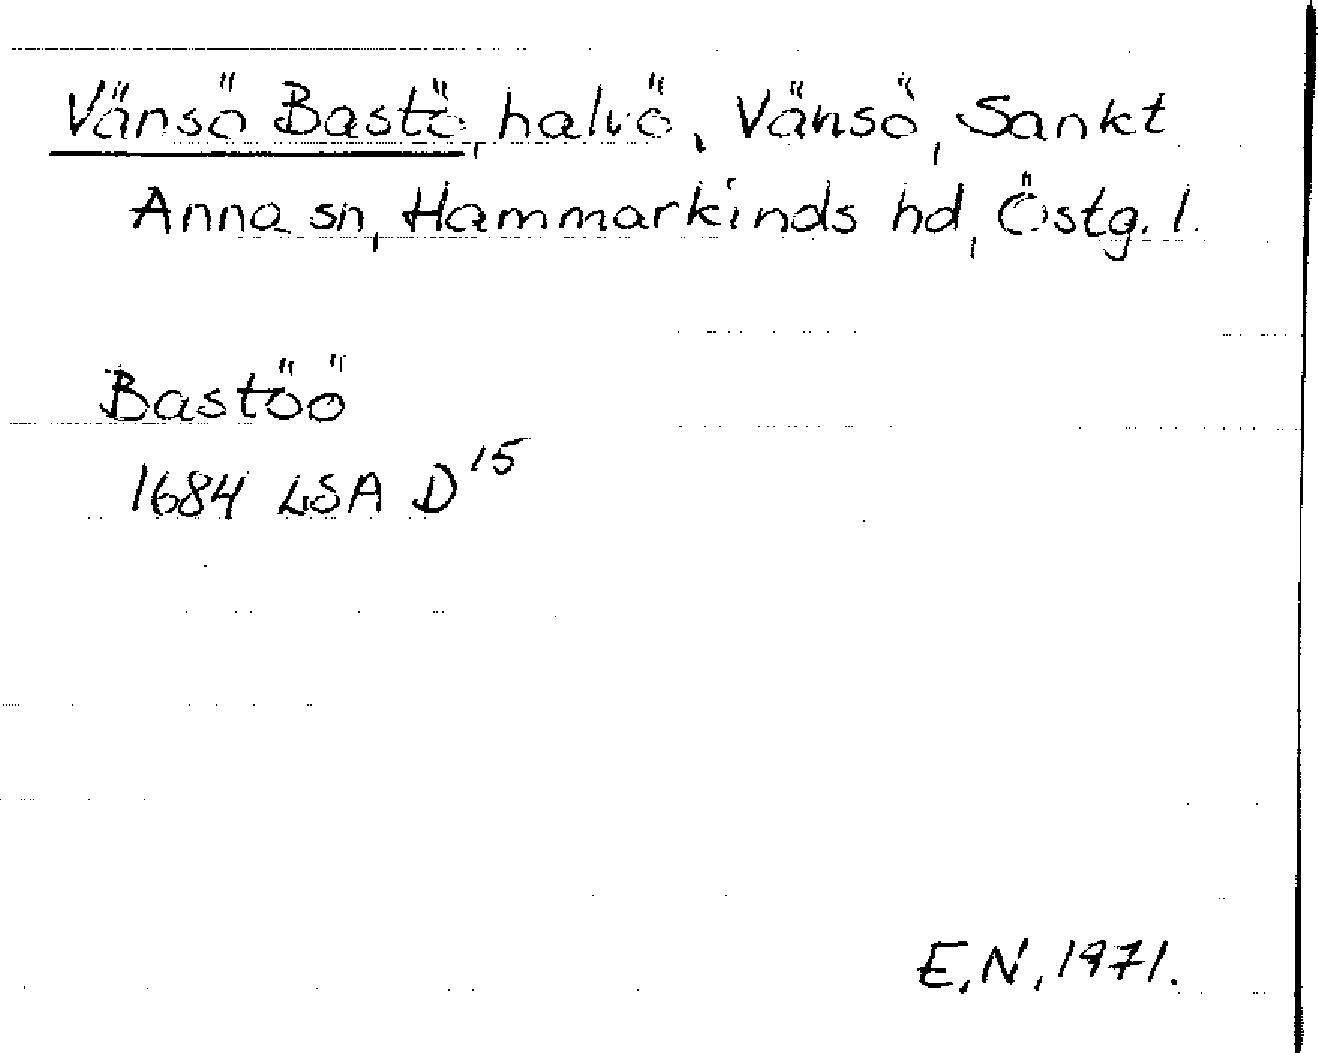 Vänsö Bastö, halvö, Vänsö, Sankt
Anna sn, Hammarkinds hd, Östg. l.
Bastöö
1684 LSA D 15
E.N, 1971.